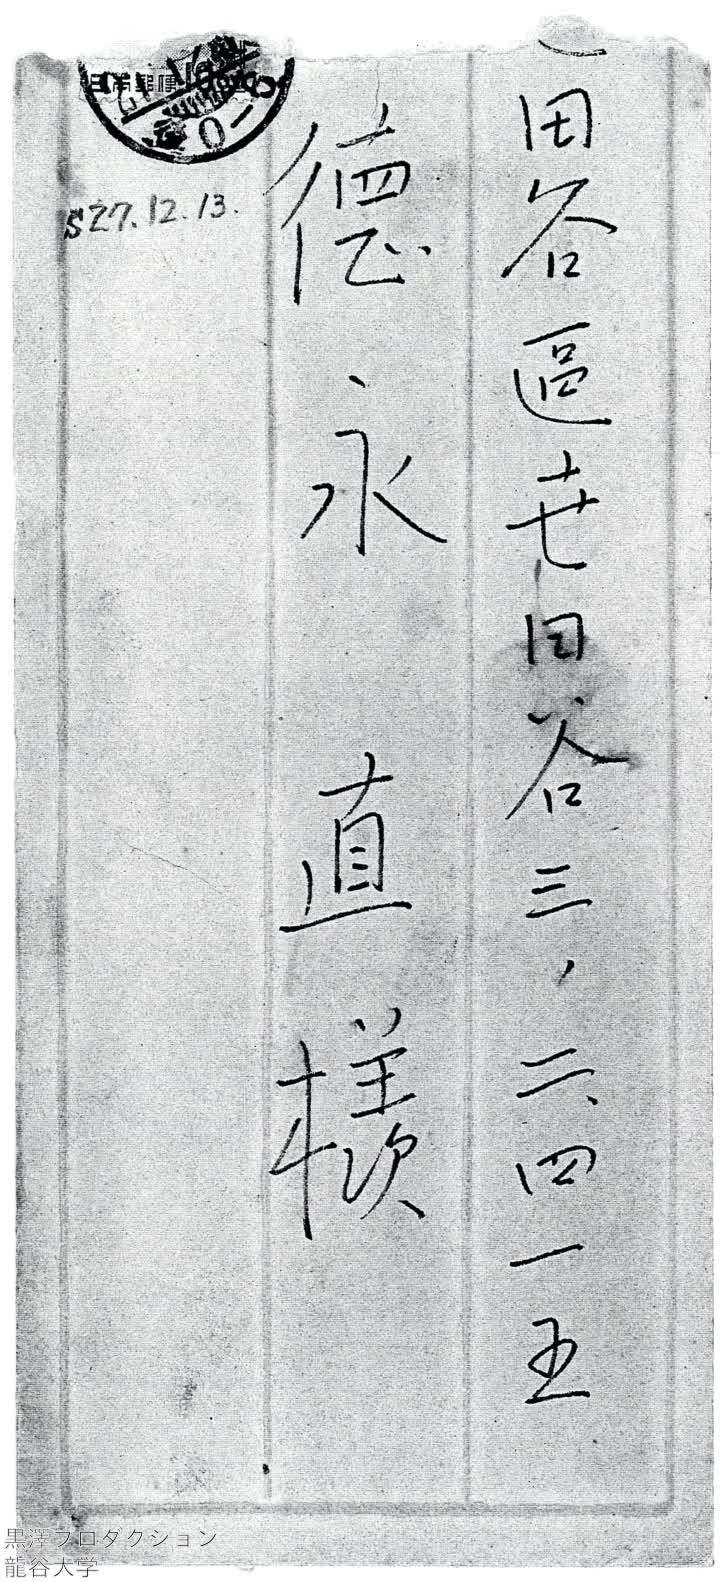 田谷區世田谷三、二、四一五
德永直様
S27.12.13.
黒澤プロダクション
龍谷大学